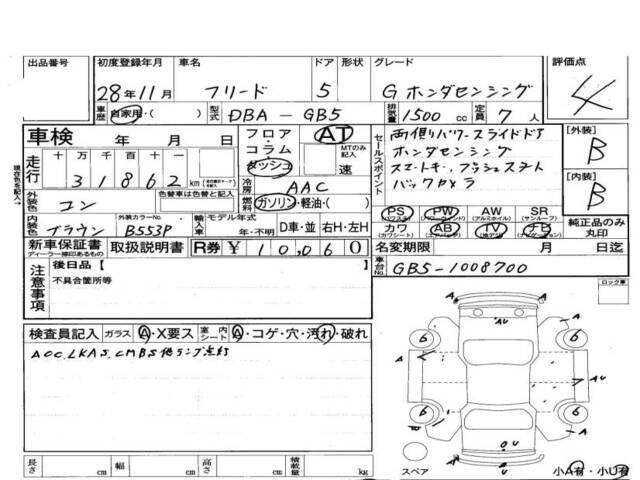 出品番号 初度登録年月 車名 ドア 形状 グレード 評価点
28年11月 フリード 5 G ホンダセンシング 4
車歴 自家用・( ) 型式 DBA-GB5 排気量 1500 cc 定員 7 人
車検 年 月 日
フロア・コラム ダッシュ AT MTのみ記入 速
セールスポイント 両側パワースライドドア
ホンダセンシング
スマートキー、プッシュスタート
バックカメラ
[外装] B
[内装] B
現在色を記入→
走行 十 万 千 百 十 一
31862 km
冷房 AAC
外装色 コン 色替車は色替と記入
燃料 ガソリン・軽油・( )
PS PW AW SR
(パワステ) (アルミホイル) (サンルーフ)
カワ AB TV ナビ
(カワシート) (エアバッグ)
純正品のみ丸印
内装色 ブラウン 外装カラーNo. B553P 輸入車 モデル年式 年・不明 D車・並 右H・左H
新車保証書 ディーラー捺印あるもの 取扱説明書 R券 ¥ 10,060 名変期限 月 日迄
車台No. GB5-1008700
注意事項 後日品【 】
不具合箇所等
ロック車
検査員記入 ガラス A・X要ス 室内シート A・コゲ・穴・汚れ・破れ
ACC.LKAS.CMBS他ランプ点灯
A AU
6 6
A AU
6 6
U A
スペア 小A有・小U有
長さ cm 幅 cm 高さ cm 積載量 kg